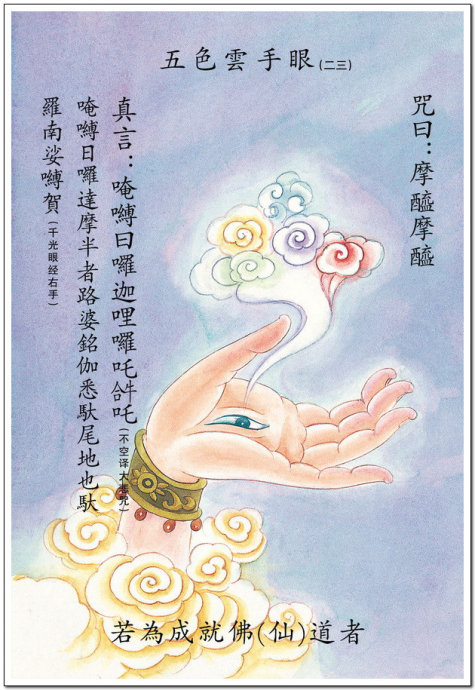 五色雲手眼(二三)
咒曰：摩醯摩醯
真言：唵嚩日囉迦哩囉吒𤙖吒(不空译大悲咒)
唵嚩日囉達摩半者路婆銘伽悉馱尾地也馱
羅南娑嚩賀(千光眼经右手)
若為成就佛(仙)道者